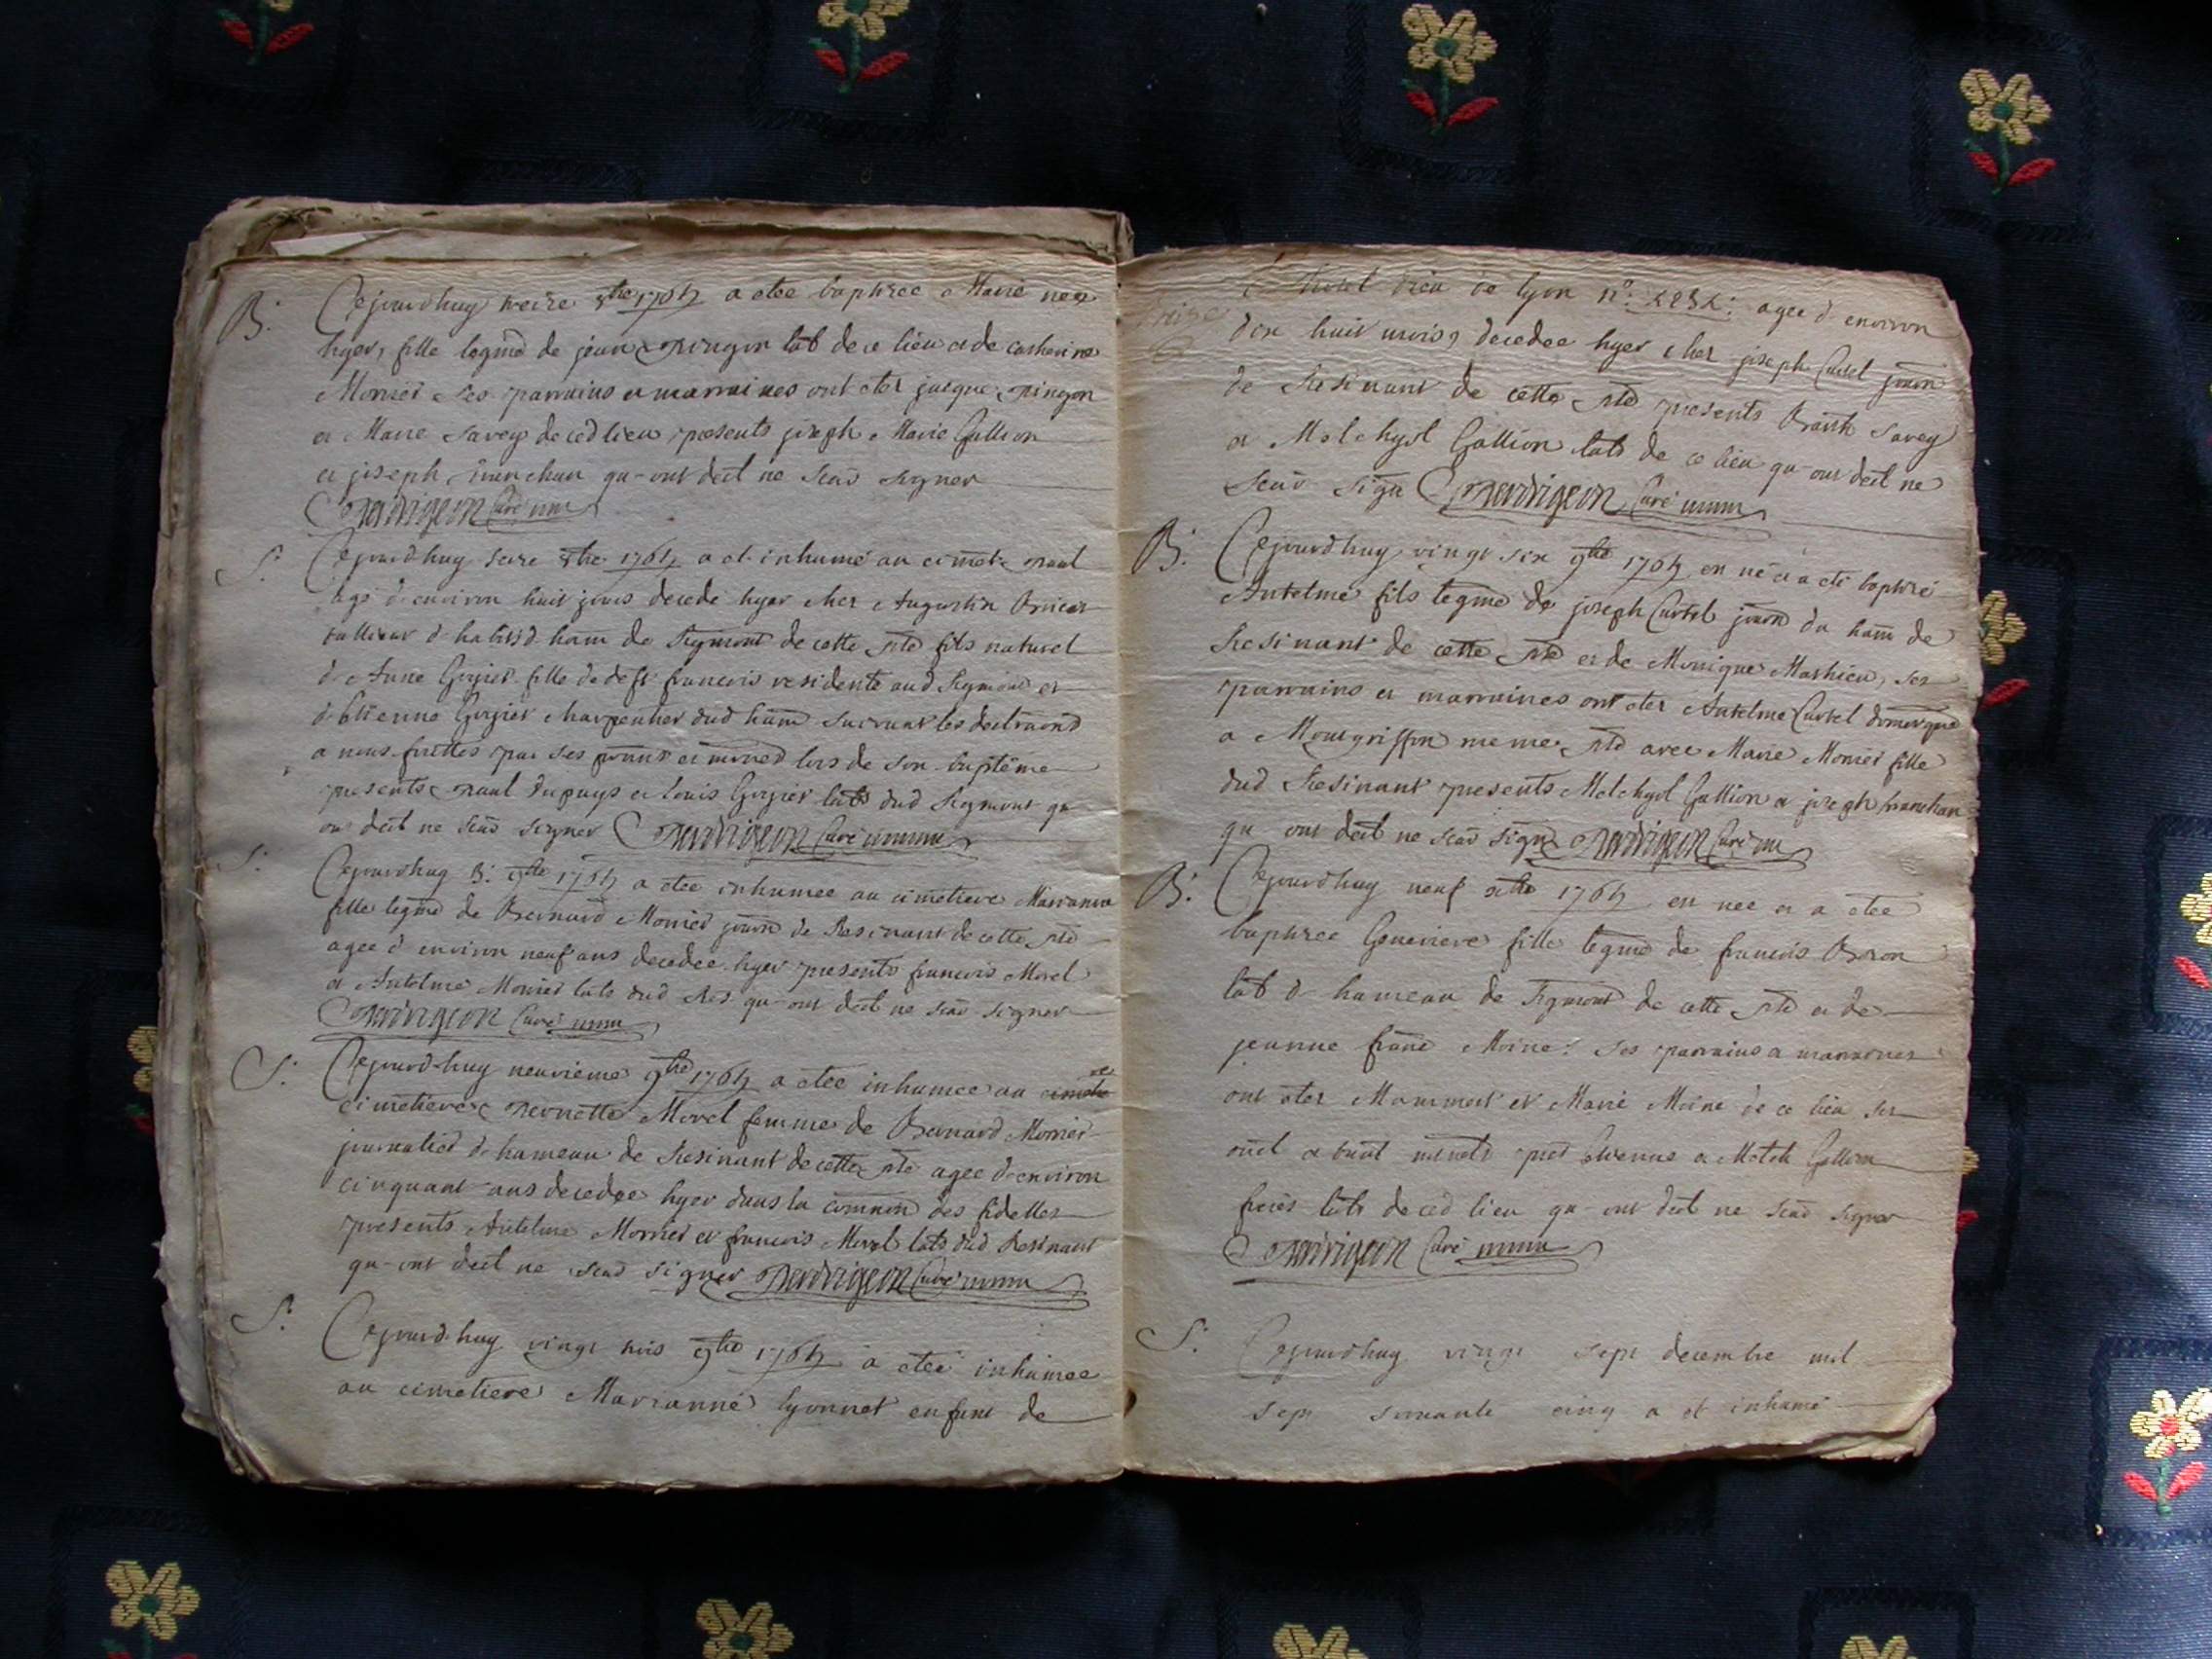 B. Cejourdhuy treize 8bre 1765 a etee baptisee Marie nee
hyer, fille legme de jean pingon lab de ce lieu et de catherine
Monier ses parrains et marraines ont eter jacque pingon
et Marie Savey de ced lieu, presents joseph Marie Gallion
et joseph franchan qu-ont deit ne scav signer
Perdrigeon Curé
S. Cejourdhuy seize 8bre 1765 a et inhumé au cimet paul
agé d environ huit jours decedé hyer chez Augustin
tallieur d habits d ham de Sigmont de cette pse fils naturel
d Anne Gojier fille de deft francois residente aud Sigmont et
d Etienne Gojier charpentier dud ham suivant les
a nous faittes par ses et lors de son baptême
presents paul Dupuys et louis Gojier labs dud Sigmont qu
ont deit ne scav signer Perdrigeon Curé
S. Cejourdhuy 3. 9bre 1765 a etee inhumee au cimetiere Marianne
fille legme de Bernard Monier journ de Resinant de cette pse
agee d environ neuf ans decedee hyer presents francois Morel
et Antelme Monier labs dud Res qu-ont deit ne scav signer
Perdrigeon Curé
S. Cejourd-huy neuvieme 9bre 1765 a etee inhumee au
cimetiere pernette Morel femme de Bernard Monier
journalier d hameau de Resinant de cette pse agee d environ
cinquant ans decedee hyer dans la des fidelles
presents Antelme Monier et francois Morel labs dud Resinant
qu-ont deit ne scav signer Perdrigeon Curé
S. Cejourd-huy vingt trois 9bre 1765 a etee inhumee
au cimetiere Marianne lyonnet enfant de
l'hotel dieu de lyon n°: agee d environ
dix huit mois, decedee hyer chez joseph Curtel journ
de Resinant de cette pse presents Savey
et Melchyol Gallion labs de ce lieu qu-ont deit ne
scav sign Perdrigeon Curé
B. Cejourdhuy vingt six 9bre 1765 en né et a eté baptisé
Antelme fils legme de joseph Curtel journ du ham de
Resinant de cette pse et de Monique Mathieu, ses
parrains et marraines ont eter Antelme Curtel domestque
a Montgriffon meme pse avec Marie Monier fille
dud Resinant presents Melchyol Gallion et joseph franchan
qu ont deit ne scav sign Perdrigeon Curé
B. Cejourdhuy neuf xbre 1765 en nee et a etee
baptisee Genevieve fille legme de francois
lab d hameau de Sigmont de cette pse et de
jeanne franc Moine: ses parrains et marraines
ont eter Mammert et Marie Moine de ce lieu ses
oncl et Etienne et Melch Gallion
freres labs de ced lieu qu-ont deit ne scav signer
Perdrigeon Curé
S. Cejourdhuy vingt sept decembre mil
sept soixante cinq a et inhumé